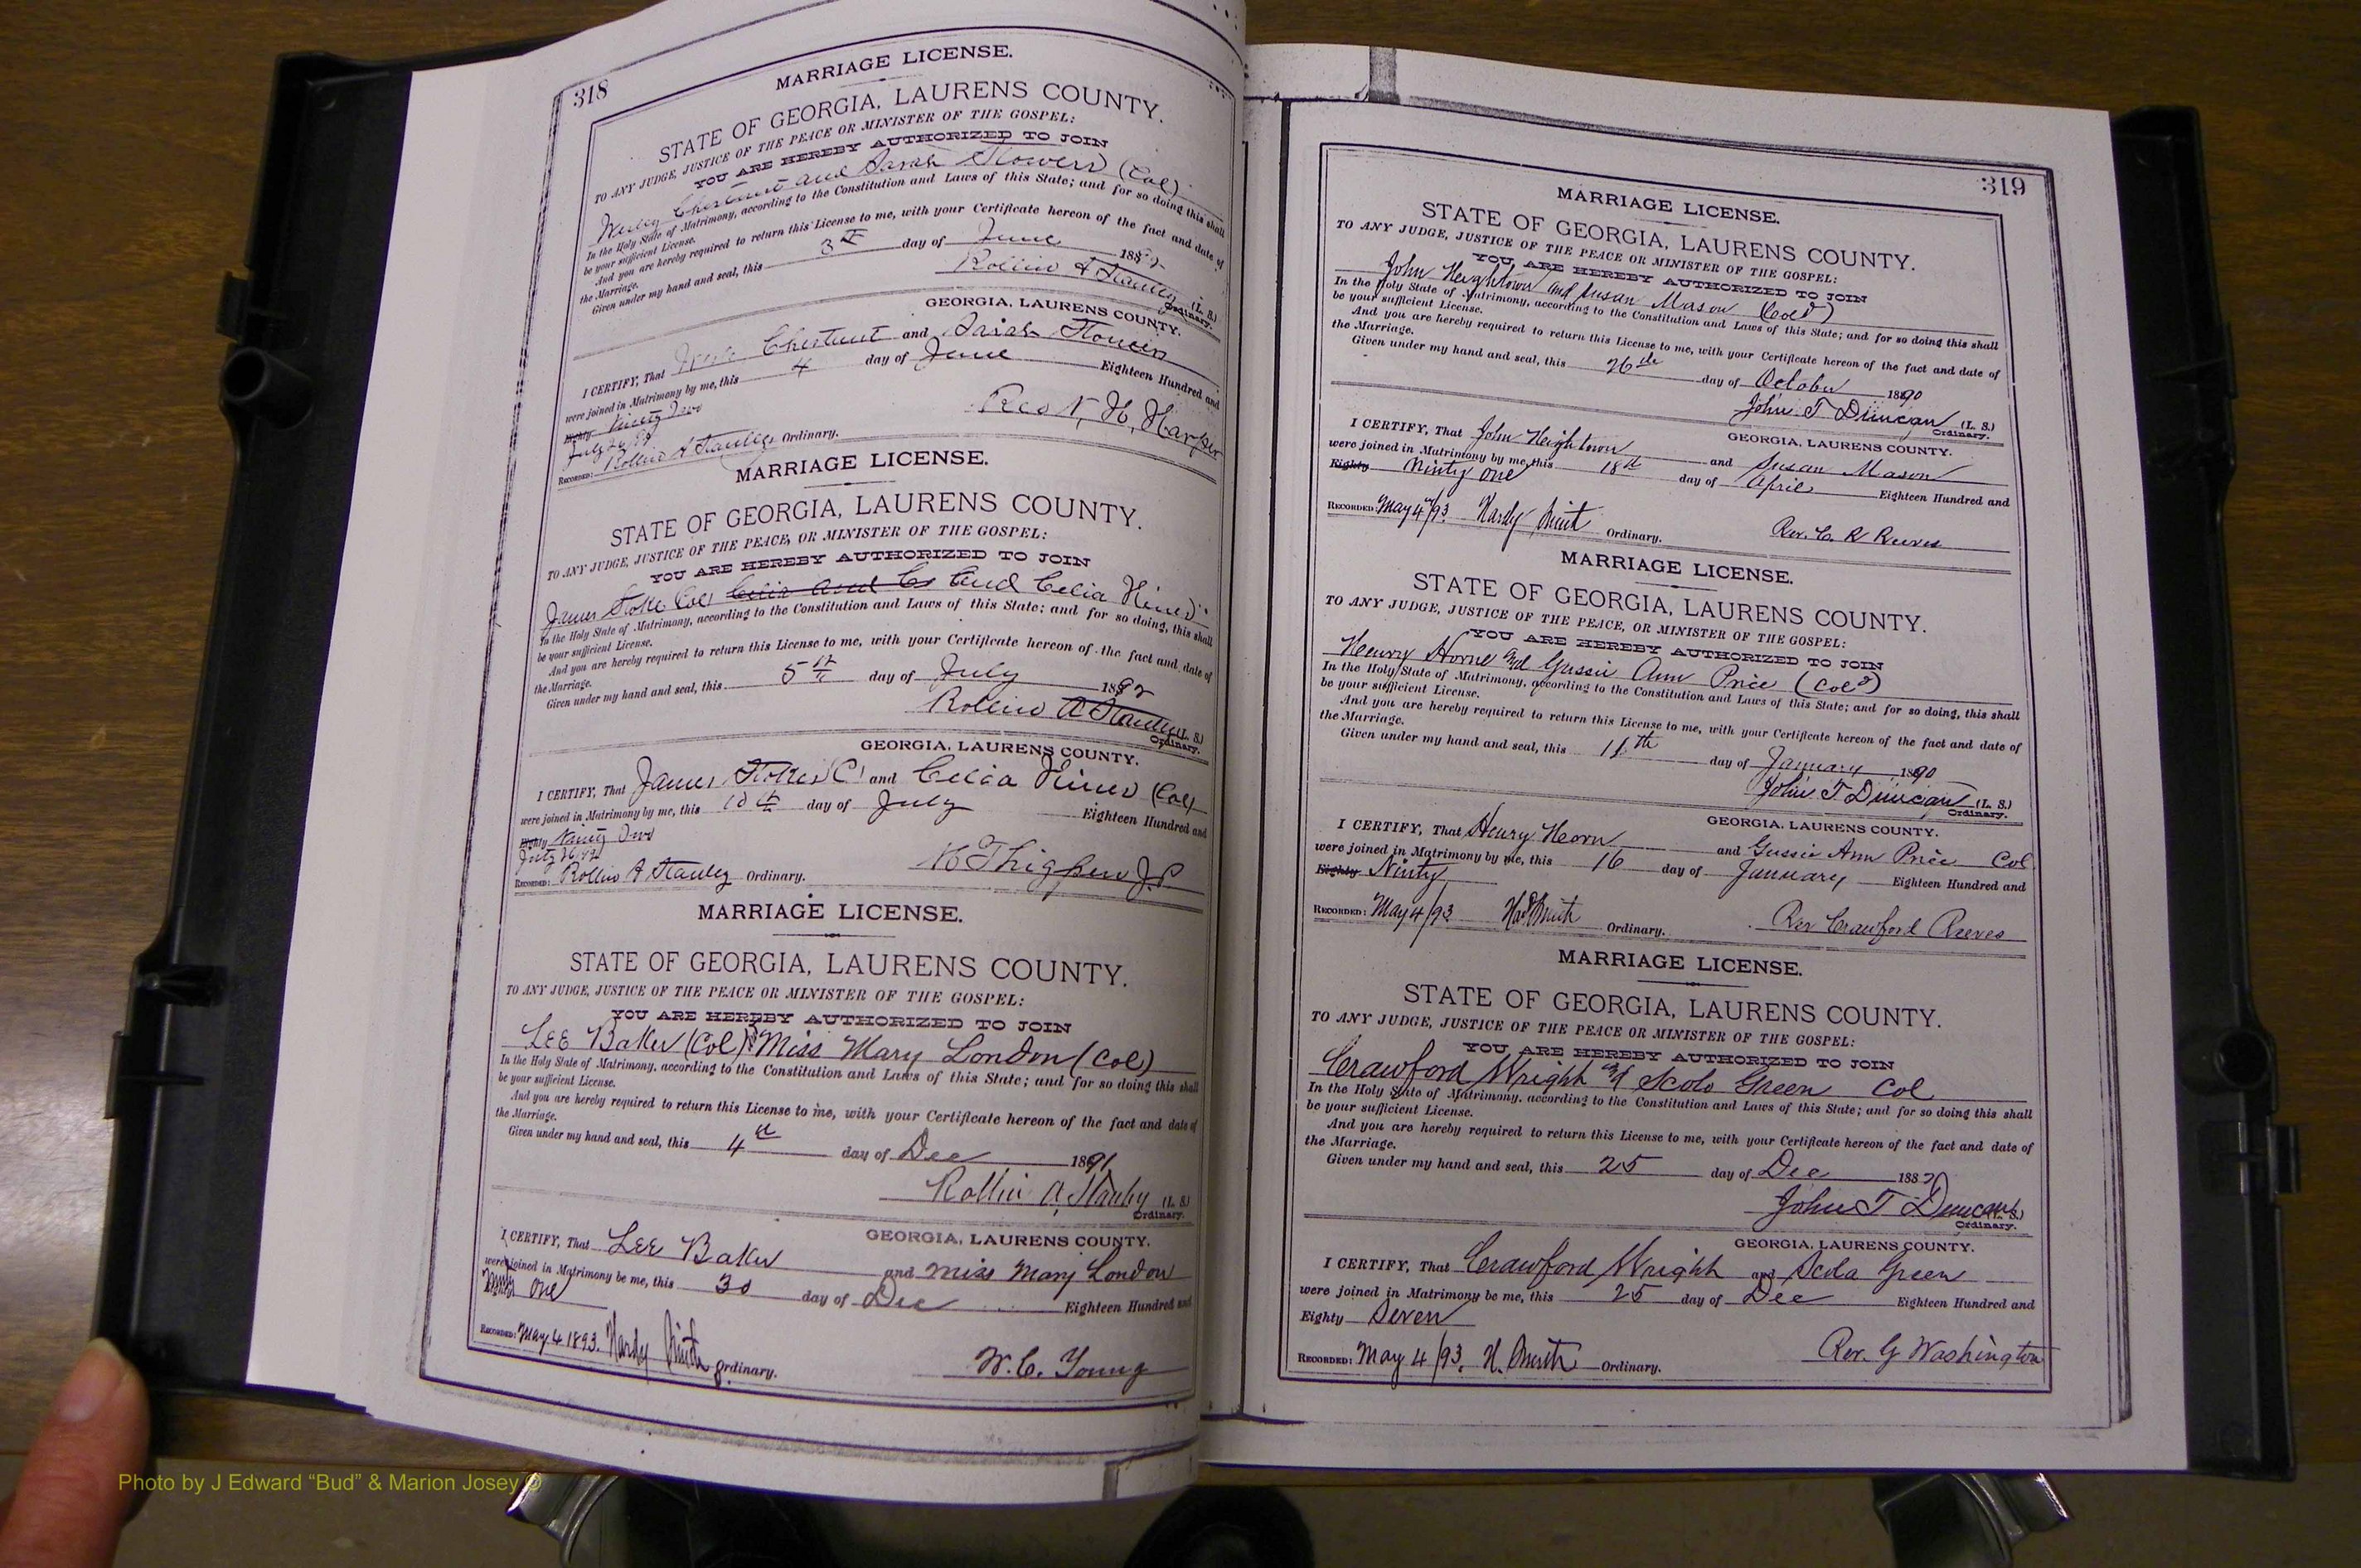 318
MARRIAGE LICENSE.
STATE OF GEORGIA, LAURENS COUNTY.
TO ANY JUDGE, JUSTICE OF THE PEACE OR MINISTER OF THE GOSPEL:
YOU ARE HEREBY AUTHORIZED TO JOIN
Chestnut and Sarah Flowers (Col)
In the Holy State of Matrimony, according to the Constitution and Laws of this State; and for so doing this shall
be your sufficient License.
And you are hereby required to return this License to me, with your Certificate hereon of the fact and date of
the Marriage.
Given under my hand and seal, this 3rd day of June 1892
Rollin A Stanley (L. S.)
Ordinary.
GEORGIA, LAURENS COUNTY.
I CERTIFY, That Chestnut and Sarah Flowers
were joined in Matrimony by me, this 4 day of June Eighteen Hundred and
Eighty Ninety Two
July 26, 92
Recorded: Rollin A Stanley Ordinary. H. Harper
MARRIAGE LICENSE.
STATE OF GEORGIA, LAURENS COUNTY.
TO ANY JUDGE, JUSTICE OF THE PEACE, OR MINISTER OF THE GOSPEL:
YOU ARE HEREBY AUTHORIZED TO JOIN
James Stoke Col Celia and Ce and Celia Hines
In the Holy State of Matrimony, according to the Constitution and Laws of this State; and for so doing, this shall
be your sufficient License.
And you are hereby required to return this License to me, with your Certificate hereon of the fact and date of
the Marriage.
Given under my hand and seal, this 5th day of July 1892
Rollin A Stanley (L. S.)
Ordinary.
GEORGIA, LAURENS COUNTY.
I CERTIFY, That James Stokes (C) and Celia Hines (Col)
were joined in Matrimony by me, this 10th day of July Eighteen Hundred and
Eighty Ninety Two
July 26, 92
Recorded: Rollin A Stanley Ordinary. H Thigpen J.P.
MARRIAGE LICENSE.
STATE OF GEORGIA, LAURENS COUNTY.
TO ANY JUDGE, JUSTICE OF THE PEACE OR MINISTER OF THE GOSPEL:
YOU ARE HEREBY AUTHORIZED TO JOIN
LEE Baker (Col) & Miss Mary London (Col)
In the Holy State of Matrimony, according to the Constitution and Laws of this State; and for so doing this shall
be your sufficient License.
And you are hereby required to return this License to me, with your Certificate hereon of the fact and date of
the Marriage.
Given under my hand and seal, this 4th day of Dec 1891
Rollin A. Stanley (L. S.)
Ordinary.
GEORGIA, LAURENS COUNTY.
I CERTIFY, That LEE Baker and Miss Mary London
were joined in Matrimony be me, this 30 day of Dec Eighteen Hundred and
Eighty Ninty One
Recorded: May 4 1893. Hardy Smith Ordinary. W. C. Young
319
MARRIAGE LICENSE.
STATE OF GEORGIA, LAURENS COUNTY.
TO ANY JUDGE, JUSTICE OF THE PEACE OR MINISTER OF THE GOSPEL:
YOU ARE HEREBY AUTHORIZED TO JOIN
John Heightown and Susan Mason (Cold)
In the Holy State of Matrimony, according to the Constitution and Laws of this State; and for so doing this shall
be your sufficient License.
And you are hereby required to return this License to me, with your Certificate hereon of the fact and date of
the Marriage.
Given under my hand and seal, this 26th day of October 1890
John T Duncan (L. S.)
Ordinary.
GEORGIA, LAURENS COUNTY.
I CERTIFY, That John Heightown and Susan Mason
were joined in Matrimony by me, this 18th day of April Eighteen Hundred and
Eighty Ninty One
Recorded: May 4th/93. Hardy Smith Ordinary. Rev. C. R Reeves
MARRIAGE LICENSE.
STATE OF GEORGIA, LAURENS COUNTY.
TO ANY JUDGE, JUSTICE OF THE PEACE, OR MINISTER OF THE GOSPEL:
YOU ARE HEREBY AUTHORIZED TO JOIN
Henry Horne and Gussie Ann Price (Cold)
In the Holy State of Matrimony, according to the Constitution and Laws of this State; and for so doing, this shall
be your sufficient License.
And you are hereby required to return this License to me, with your Certificate hereon of the fact and date of
the Marriage.
Given under my hand and seal, this 11th day of January 1890
John T Duncan (L. S.)
Ordinary.
GEORGIA, LAURENS COUNTY.
I CERTIFY, That Henry Hearn and Gussie Ann Price Col
were joined in Matrimony by me, this 16 day of January Eighteen Hundred and
Eighty Ninty
Recorded: May 4/93 Smith Ordinary. Rev Crawford Reeves
MARRIAGE LICENSE.
STATE OF GEORGIA, LAURENS COUNTY.
TO ANY JUDGE, JUSTICE OF THE PEACE OR MINISTER OF THE GOSPEL:
YOU ARE HEREBY AUTHORIZED TO JOIN
Crawford Wright and Scolo Green Col
In the Holy State of Matrimony, according to the Constitution and Laws of this State; and for so doing this shall
be your sufficient License.
And you are hereby required to return this License to me, with your Certificate hereon of the fact and date of
the Marriage.
Given under my hand and seal, this 25 day of Dec 1887
John T Duncan (L. S.)
Ordinary.
GEORGIA, LAURENS COUNTY.
I CERTIFY, That Crawford Wright and Scola Green
were joined in Matrimony be me, this 25 day of Dec Eighteen Hundred and
Eighty Seven
Recorded: May 4/93. H. Smith Ordinary. Rev. G Washington
Photo by J Edward “Bud” & Marion Josey ©